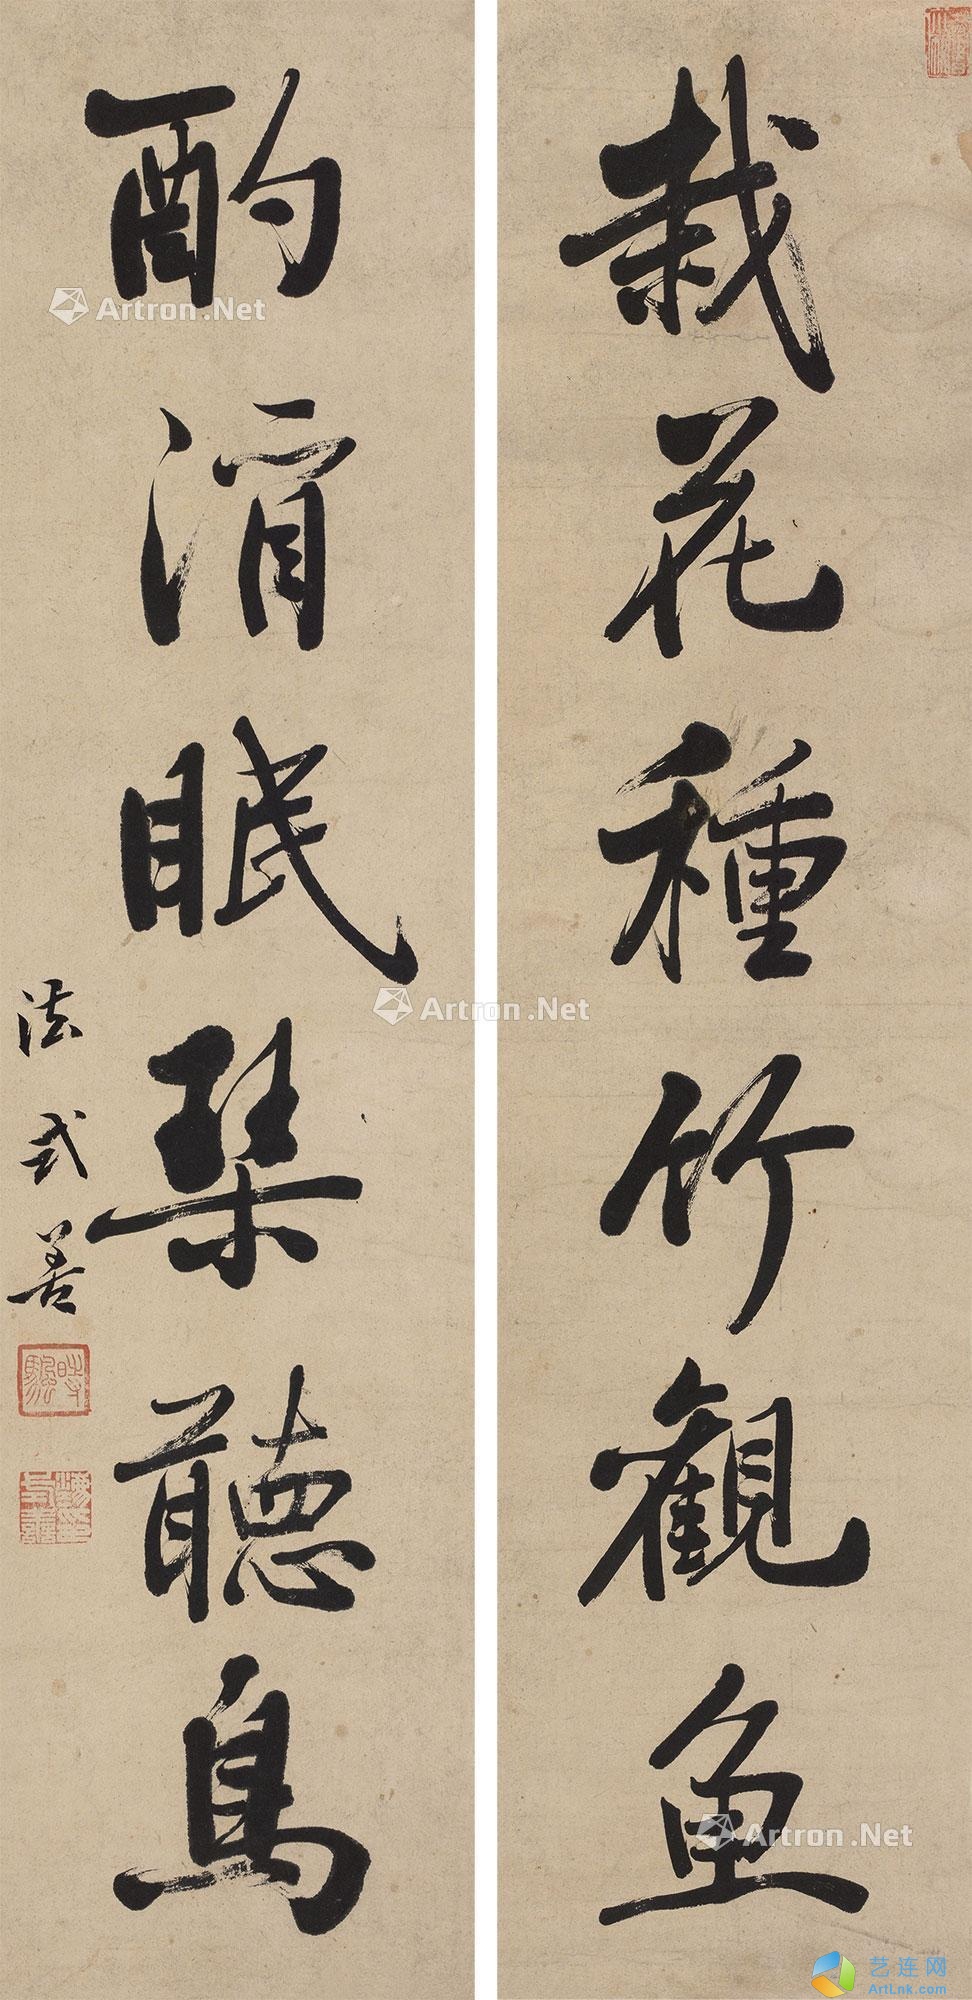 栽花種竹觀魚
酌湑眠琹聽鳥
法式善
時驅
Artron.Net
Artron.Net
Artron.Net
艺连网
ArtLnk.com